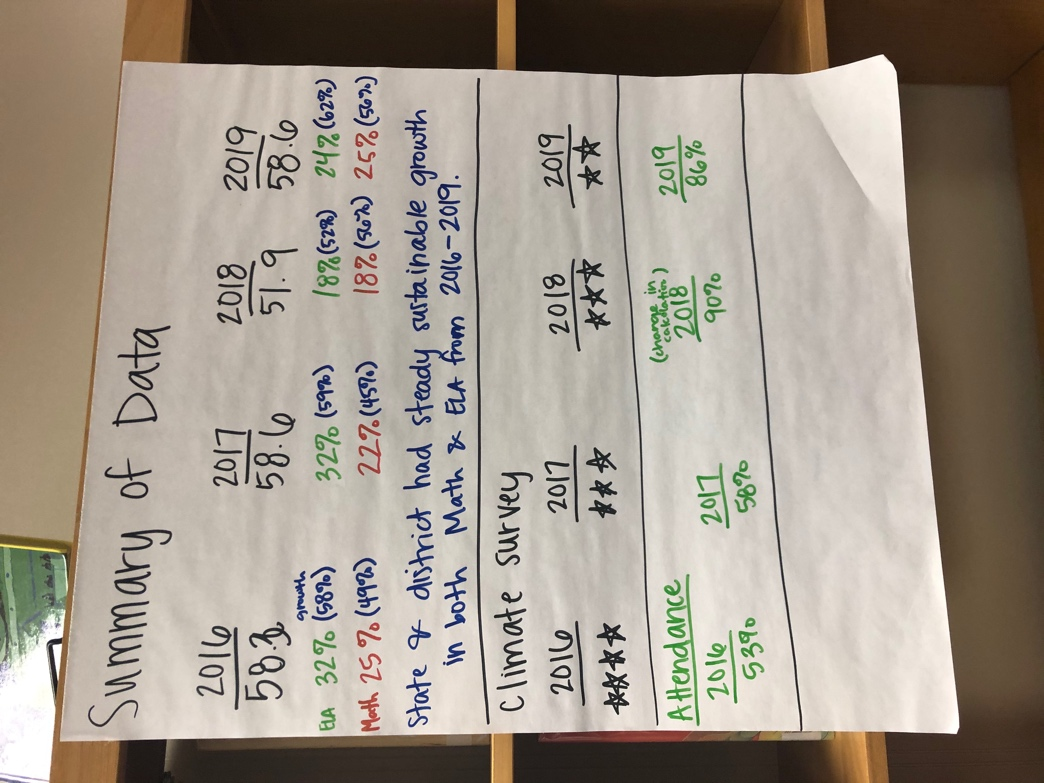 Summary of Data
2016 2017 2018 2019
58.3 58.6 51.9 58.6
growth
ELA 32% (58%) 32% (59%) 18% (52%) 24% (62%)
Math 25% (49%) 22% (45%) 18% (56%) 25% (56%)
State & district had steady sustainable growth
in both Math & ELA from 2016-2019.
Climate Survey
2016 2017 2018 2019
★★★★ ★★★ ★★★ ★★
Attendance
(change in
calculation)
2016 2017 2018 2019
53% 58% 90% 86%